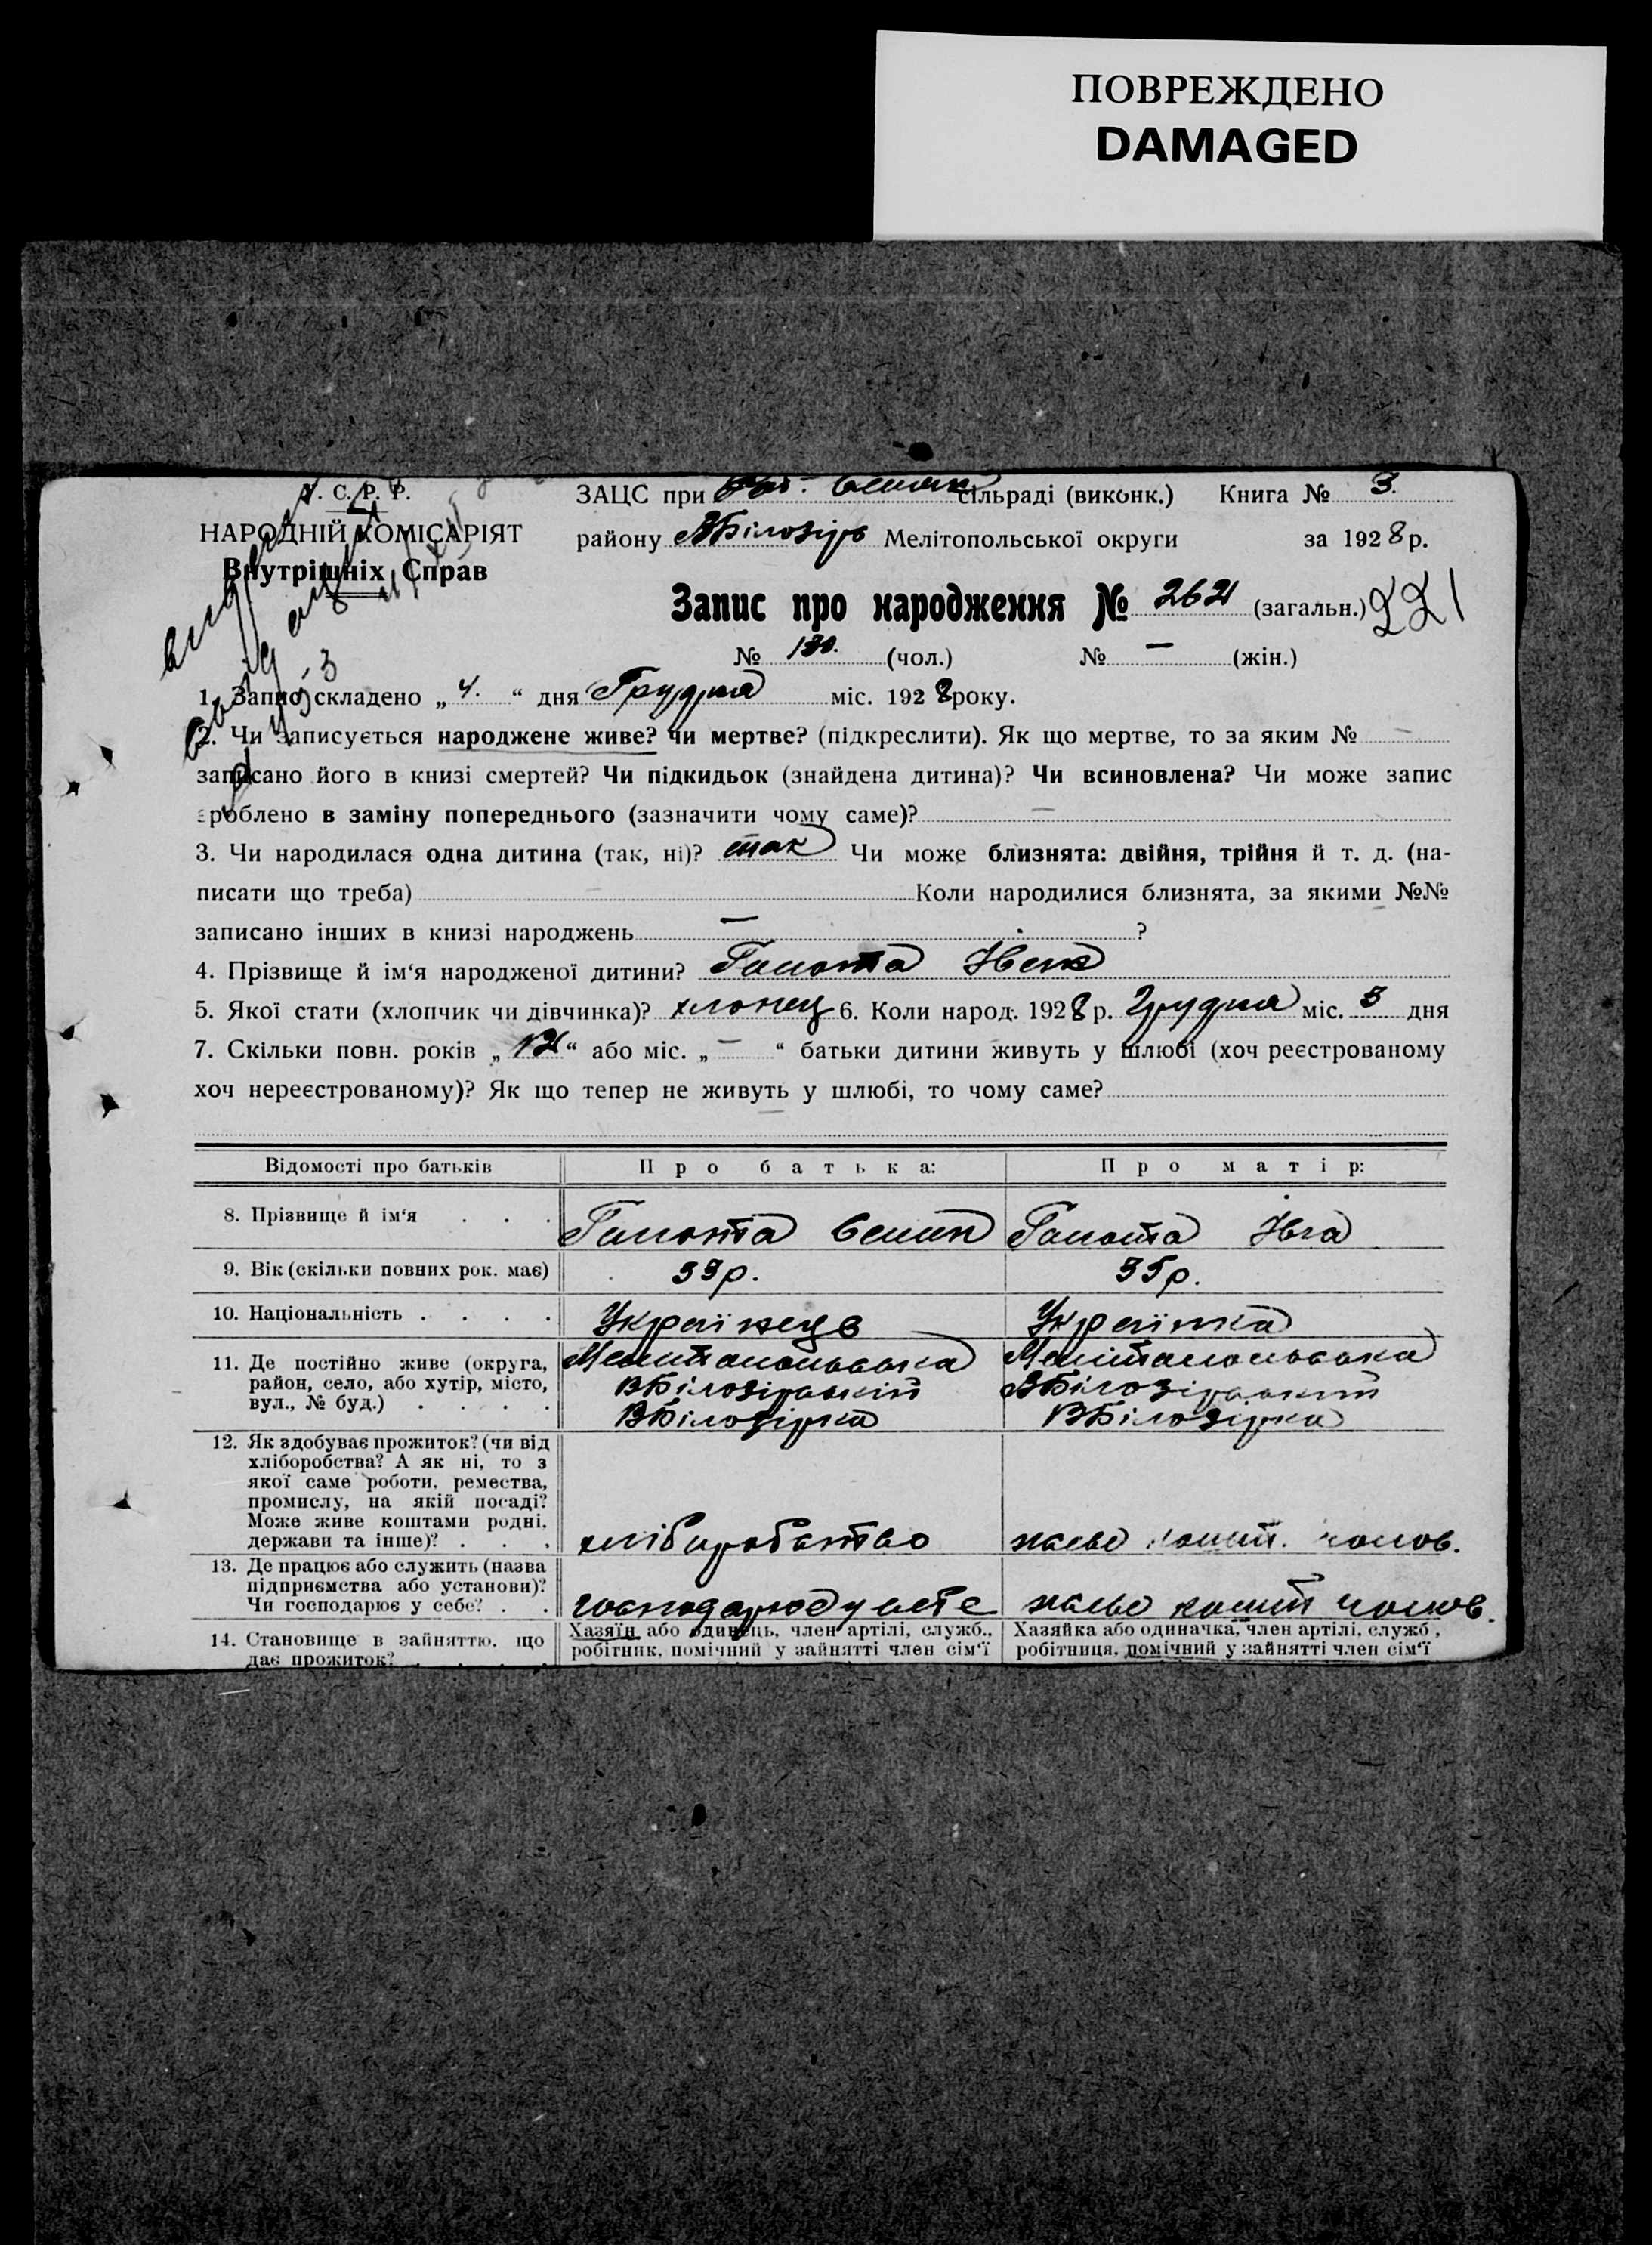 ПОВРЕЖДЕНО
DAMAGED
С. Р. Р.
НАРОДНІЙ КОМІСАРІЯТ
Внутрішніх Справ
ЗАЦС при сільраді (виконк.) Книга № 3.
району ВБілозірв Мелітопольської округи за 1928 р.
Запис про народження № 2621 (загальн.) 221
№ 130. (чол.) № — (жін.)
1. Запис складено „ 4. “ дня Грудня міс. 1928 року.
2. Чи записується народжене живе? чи мертве? (підкреслити). Як що мертве, то за яким № —
записано його в книзі смертей? Чи підкидьок (знайдена дитина)? Чи всиновлена? Чи може запис
зроблено в заміну попереднього (зазначити чому саме)? —
3. Чи народилася одна дитина (так, ні)? так Чи може близнята: двійня, трійня й т. д. (на-
писати що треба) Коли народилися близнята, за якими №№
записано інших в книзі народжень — ?
4. Прізвище й ім‘я народженої дитини? Гамота Іван
5. Якої стати (хлопчик чи дівчинка)? хлопец 6. Коли народ. 1928 р. Грудня міс. 3 дня
7. Скільки повн. років „ “ або міс. „ — “ батьки дитини живуть у шлюбі (хоч реєстрованому
хоч нереєстрованому)? Як що тепер не живуть у шлюбі, то чому саме?
Відомості про батьків Про батька: Про матір:
8. Прізвище й ім‘я . . . Гамота Семен Гамота Івга
9. Вік (скільки повних рок. має) 39р. 35р.
10. Національність . . . . Українець Українка
11. Де постійно живе (округа, Мелітопольська Мелітопольська
район, село, або хутір, місто, ВБілозірський ВБілозірський
вул., № буд.) . . . . ВБілозірка ВБілозірка
12. Як здобуває прожиток? (чи від
хліборобства? А як ні, то з
якої саме роботи, ремества,
промислу, на якій посаді?
Може живе коштами родні,
держави та інше)? . . . хліборобство живе кошт. чолов.
13. Де працює або служить (назва
підприємства або установи)?
Чи господарює у себе? . . господарює у себе живе кошт чолов.
14. Становище в зайняттю, що Хазяїн або одинець, член артілі, служб., Хазяйка або одиначка, член артілі, служб ,
дає прожиток? робітник, помічний у зайнятті член сім‘ї робітниця, помічний у зайнятті член сім‘ї